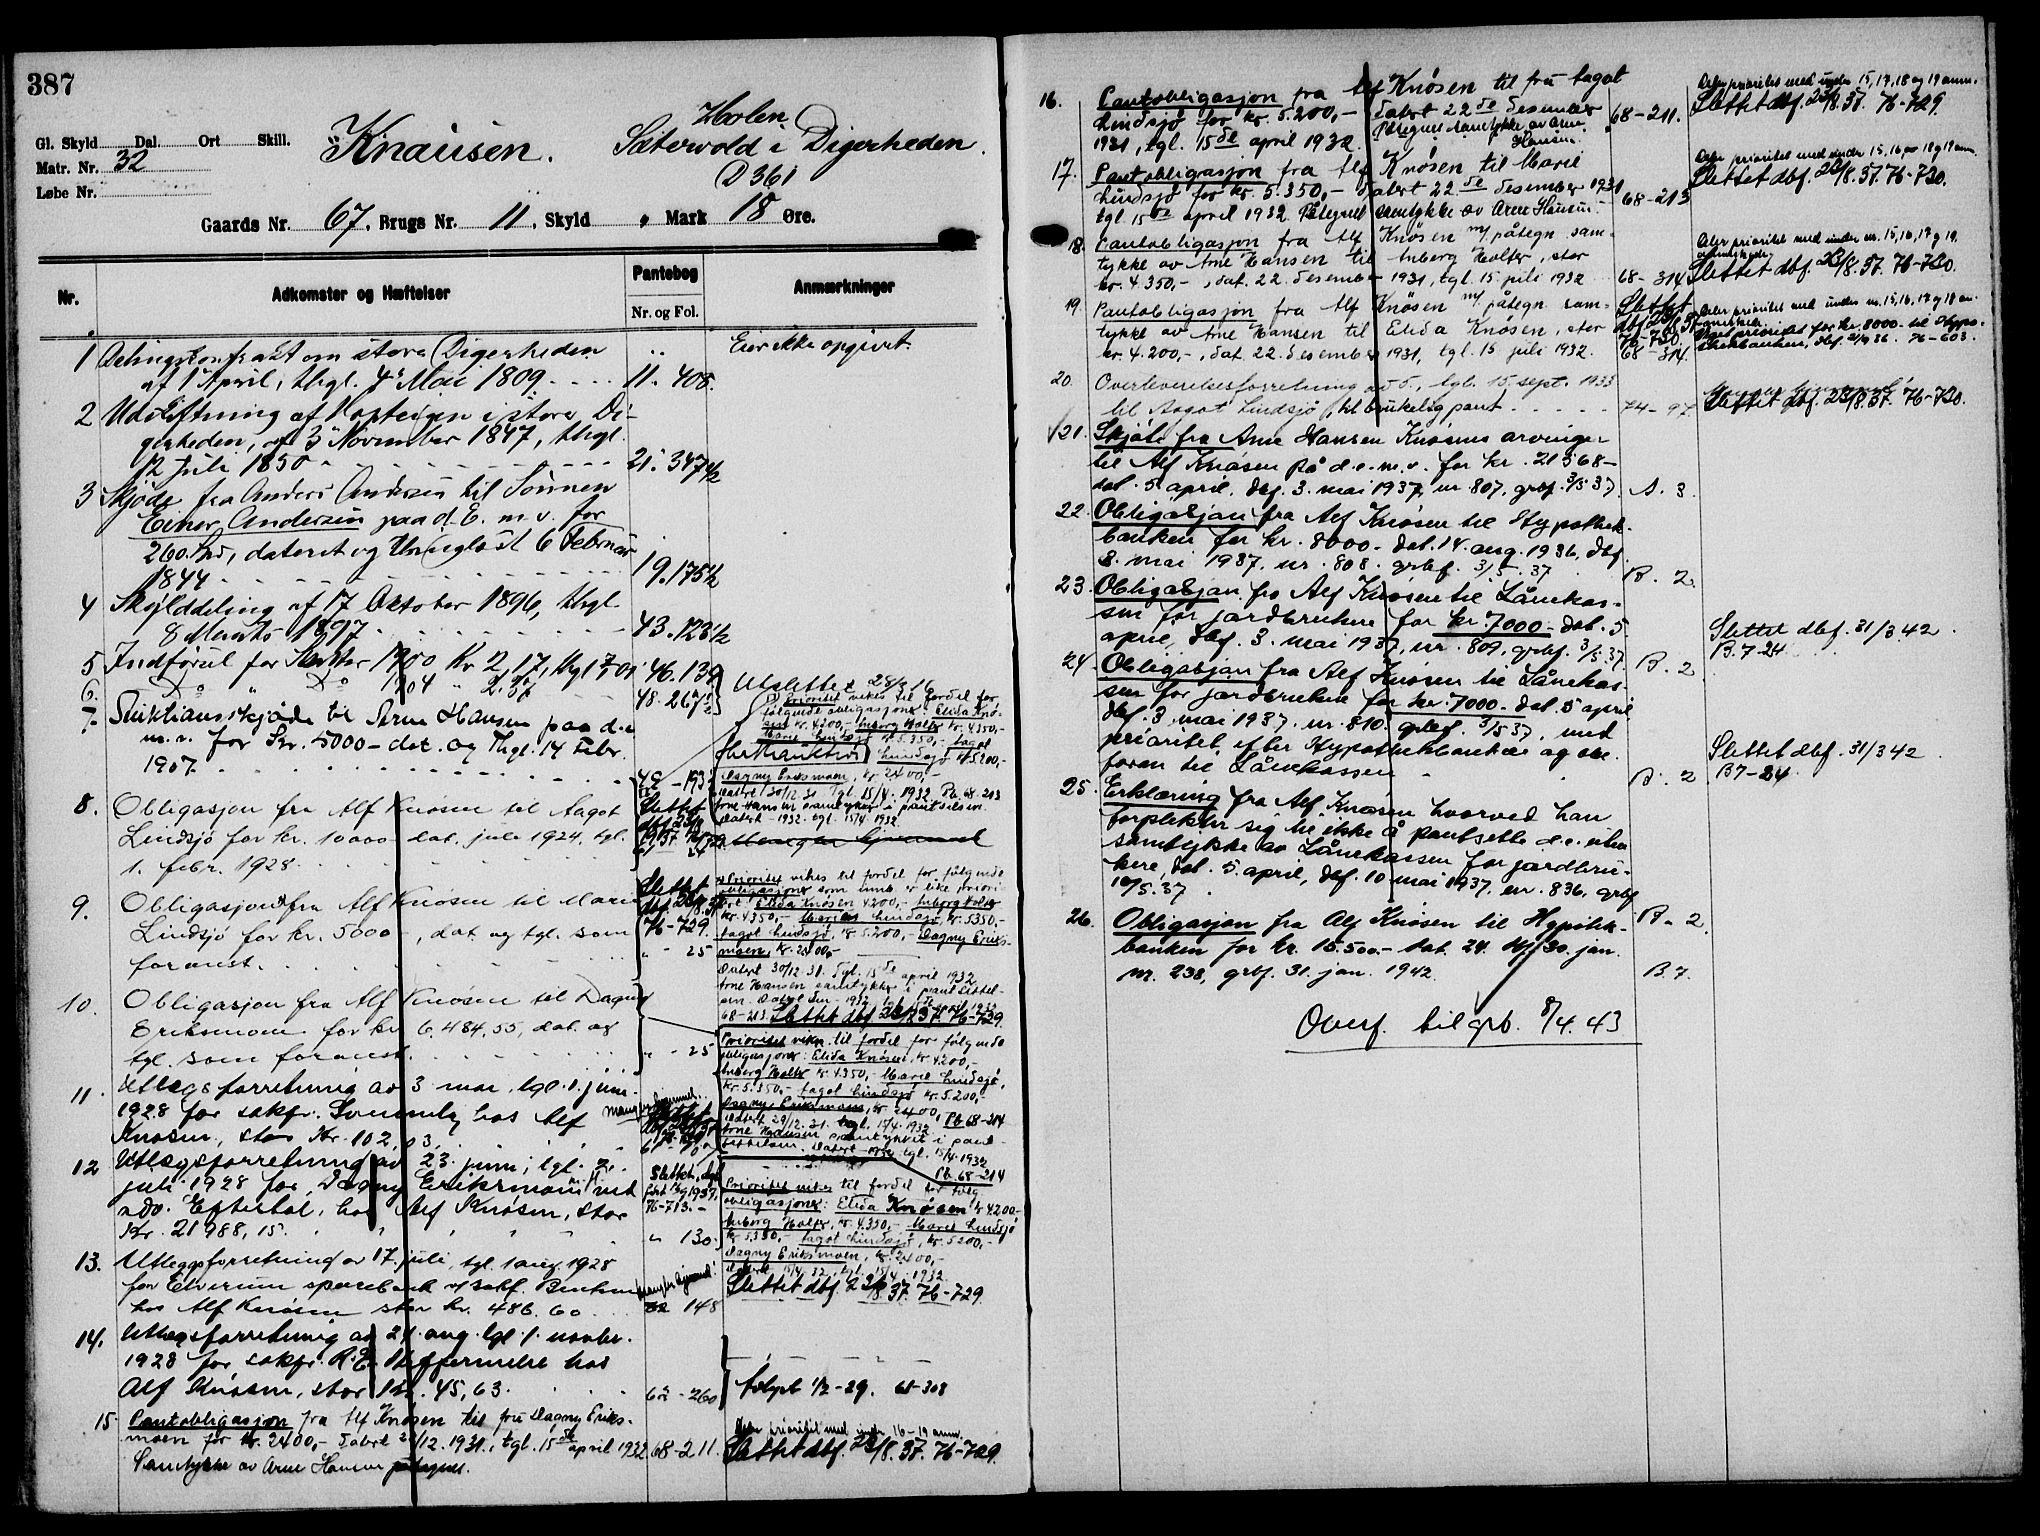 387
Gl. Skyld Dal. Ort Skill.
Matr. Nr. 32
Løbe Nr.
Knausen.
Holen
Sætervold i Digerheden.
D 361
Gaards Nr. 67, Brugs Nr. 11, Skyld " Mark 18 Øre.
Nr.
Adkomster og Hæftelser
Pantebog
Nr. og Fol.
Anmærkninger
1 Delingskontrakt om store Digerheden
af 1 April, thgl. 4 Mai 1809
11. 408.
Eier ikke opgivet.
2 Udskiftning af Hopteigen i store Di-
gerheden, af 3 November 1847, thgl.
12 Juli 1850
21. 347 1/2
3 Skjøde fra Anders Andersen til Sønnen
Einer Andersen paa d. E. m. v. for
260 Spd, dateret og thinglæst 6 Februar
1844
19. 175 1/2
4 Skylddeling af 17 Oktober 1896, thgl.
8 Marts 1897
43. 123 1/2
5 Indførsel for Skatter 1900 Kr 2,17, thgl
46. 139
6. Do " Do 1904
48. 267
Udslettet
7. Auktionsskjøde til Arne Hansen paa d.e.
m. v. for Kr. 5000 - dat. og thgl. 14 Febr.
1907
8. Obligasjon fra Alf Knøsen til Aagot
Lindsjø for kr. 10000 dat. juli 1924, tgl.
1. febr. 1928
Slettet
følgende obligasjoner: Elida Knø-
sen kr. 4200,- Inberg Holter kr. 4350,-
Marie Lindsjø kr. 5.350,- Aagot
Lindsjø kr 5200,-
Dagny Eriksmoen, kr. 2400,-
Datert 30/12 31 tgl. 15/4 1932 Pb. 68-213
Arne Hansen samtykker i pantsettelsen.
Datert 1932 tgl. 15/4 1932
9. Obligasjon fra Alf Knøsen til Marie
Lindsjø for kr. 5000-, dat. og tgl. som
foranst.
Slettet
76-729.
" 25
Prioritet vikes til fordel for følgende
obligasjoner som innb. er like priori-
tert Elida Knøsen 4200,- Inberg Holter
kr. 4350,- Marie Lindsjø kr. 5350,-
Aagot Lindsjø, kr 5.200,- Dagny Eriks-
moen, kr. 2400,-
Datert 30/12 31. Tgl. 15de april 1932
Arne Hansen samtykker i pantsettel-
68-213. Slettet dbf. 23/8.37. 76-729.
10. Obligasjon fra Alf Knøsen til Dagny
Eriksmoen for kr. 6.484,55, dat. og
tgl. som foranst.
" - 25
Prioritet vikes til fordel for følgende
obligasjoner: Elida Knøsen, kr. 4200,-
Inberg Holter kr. 4.350,- Marie Lindsjø,
kr. 5.350,- Aagot Lindsjø kr. 5.200,-
Dagny Eriksmoen, kr. 2400,
tgl. 15/4 1932 Pb 68-214
Arne Hansen samtykket i pant-
settelsen. Datert tgl. 15/4 1932
Pb. 68-214
11. Utlegsforretning av 3 mai, tgl. 1. juni
1928 for sakfr. hos Alf
Knøsen, stor Kr. 102,03.
12 Utlegsforretning av 23. juni, tgl. 2.
juli 1928 for Dagny Eriksmoen ved
adv. Eftestøl, hos Alf Knøsen, stor
Kr. 21988,15.
Slettet,
76-713.-
" 130
Prioritet vikes til fordel for følg.
obligasjoner: Elida Knøsen kr 4200.-
Inborg Holter, kr. 4.350,- Marie Lindsjø
kr 5.350,- Aagot Lindsjø, kr. 5200,-
Dagny Eriksmoen, kr. 2400,-
Slettet dbf. 23/8.37. 76-729.
13. Utleggsforretning av 17. juli, tgl. 1 aug. 1928
for Elverum sparebank v/ sakf.
hos Alf Knøsen stor kr. 486.60
148
14. Utlegsforretning av 21. aug. tgl. 1. novbr.
1928 for sakfr. hos
Alf Knøsen, stor kr. 45,63.
62-260
Avlyst 1/2-29. 61-308
15. Pantobligasjon fra Alf Knøsen til fru Dagny Eriks-
moen for kr. 2400,- datert 22/12.1931, tgl. 15de april 1932
Samtykke av Arne Hansen påtegnet.
68-211.
Deler prioritet med under 16-19 anm.
Slettet dbf. 23/8.37. 76-729.
16. Pantobligasjon fra Alf Knøsen til fru Aagot
Lindsjø for kr. 5.200,- datert 22de desember
1931, tgl. 15de april 1932. Påtegnet samtykke av Arne
Hansen.
68-211.
Deler prioritet med under 15, 17, 18 og 19 anm.
Slettet dbf. 23/8.37. 76-729.
17. Pantobligasjon fra Alf Knøsen til Marie
Lindsjø for kr. 5.350,- datert 22de desember 1931
tgl. 15de april 1932. Påtegnet samtykke av Arne Hansen.
68-213
Deler prioritet med under 15, 16, 18 og 19 anm.
Slettet dbf. 23/8.37. 76-730.
18. Pantobligasjon fra Alf Knøsen m/ påtegn. sam-
tykke av Arne Hansen til Inberg Holter, stor
kr. 4.350,-, dat. 22. desember 1931, tgl. 15. juli 1932
68-314
Deler prioritet med under nr. 15, 16, 17 og 19.
Slettet dbf. 23/8.37. 76-730.
19. Pantobligasjon fra Alf Knøsen m/ påtegn. sam-
tykke av Arne Hansen til Elida Knøsen, stor
kr. 4.200,-, dat. 22. desember 1931, tgl. 15. juli 1932.
Slettet
76-730.
68-314.
Deler prioritet med under nr. 15, 16, 17 og 18 an-
prioritet for kr. 8000- til Hypo-
tekbanken, 76-603.
20. Overleverelsesforretning av 5., tgl. 15. sept. 1933
til Aagot Lindsjø til brukelig pant
74-97
Slettet dbf. 23/8.37. 76-730.
21. Skjøte fra Arne Hansen Knøsens arvinger
til Alf Knøsen på d.e.m.v. for kr. 21568-
dat. 5 april, dbf. 3. mai 1937, nr. 807, grbf. 3/5 37
A. 3.
22. Obligasjon fra Alf Knøsen til Hypotek-
banken for kr. 8000.- dat. 14. aug. 1936, dbf.
3. mai 1937, nr. 808. grbf. 3/5. 37
B. 2.
23. Obligasjon fra Alf Knøsen til Lånekas-
sen for jordbrukere for kr. 7000- dat. 5
april, dbf. 3. mai 1937, nr. 809, grbf. 3/5 37
B. 2
Slettet dbf. 31/3 42.
B. 7-24
24. Obligasjon fra Alf Knøsen til Lånekas-
sen for jordbrukere for kr. 7000- dat. 5 april
dbf. 3. mai 1937. nr. 810. grbf. 3/5 37, med
prioritet efter Hypotekbanken og
foran til Lånekassen
B. 2
Slettet dbf. 31/3 42
B7-24.
25. Erklæring fra Alf Knøsen hvorved han
forplikter sig til ikke å pantsette d.e. uten
samtykke av Lånekassen for jordbru-
kere, dat. 5. april, dbf. 10 mai 1937. nr. 836, grbf
10/5. 37.
B - 2.
26. Obligasjon fra Alf Knøsen til Hypotek-
banken for kr. 15.500.- dat. 24. 30. jan.
nr. 238, grbf. 31. jan. 1942.
B. 7.
Overf. til grb. 8/4. 43